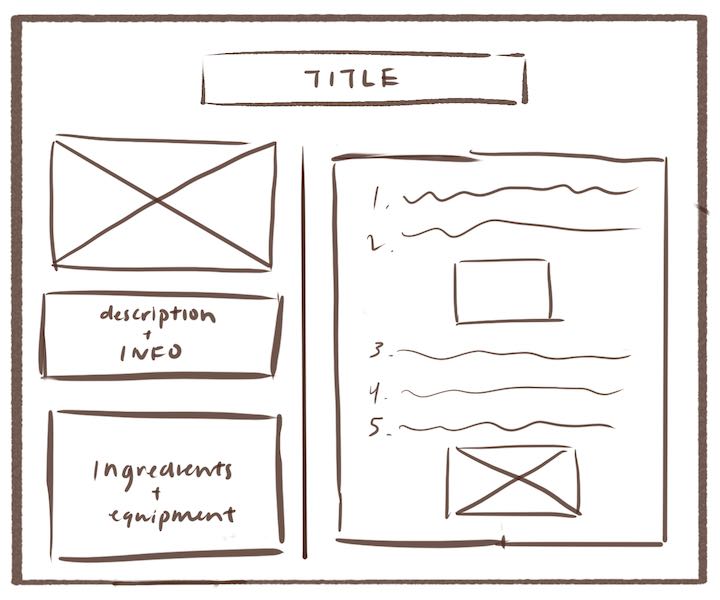 TITLE
description
+
INFO
Ingredients
+
equipment
1.
2.
3.
4.
5.